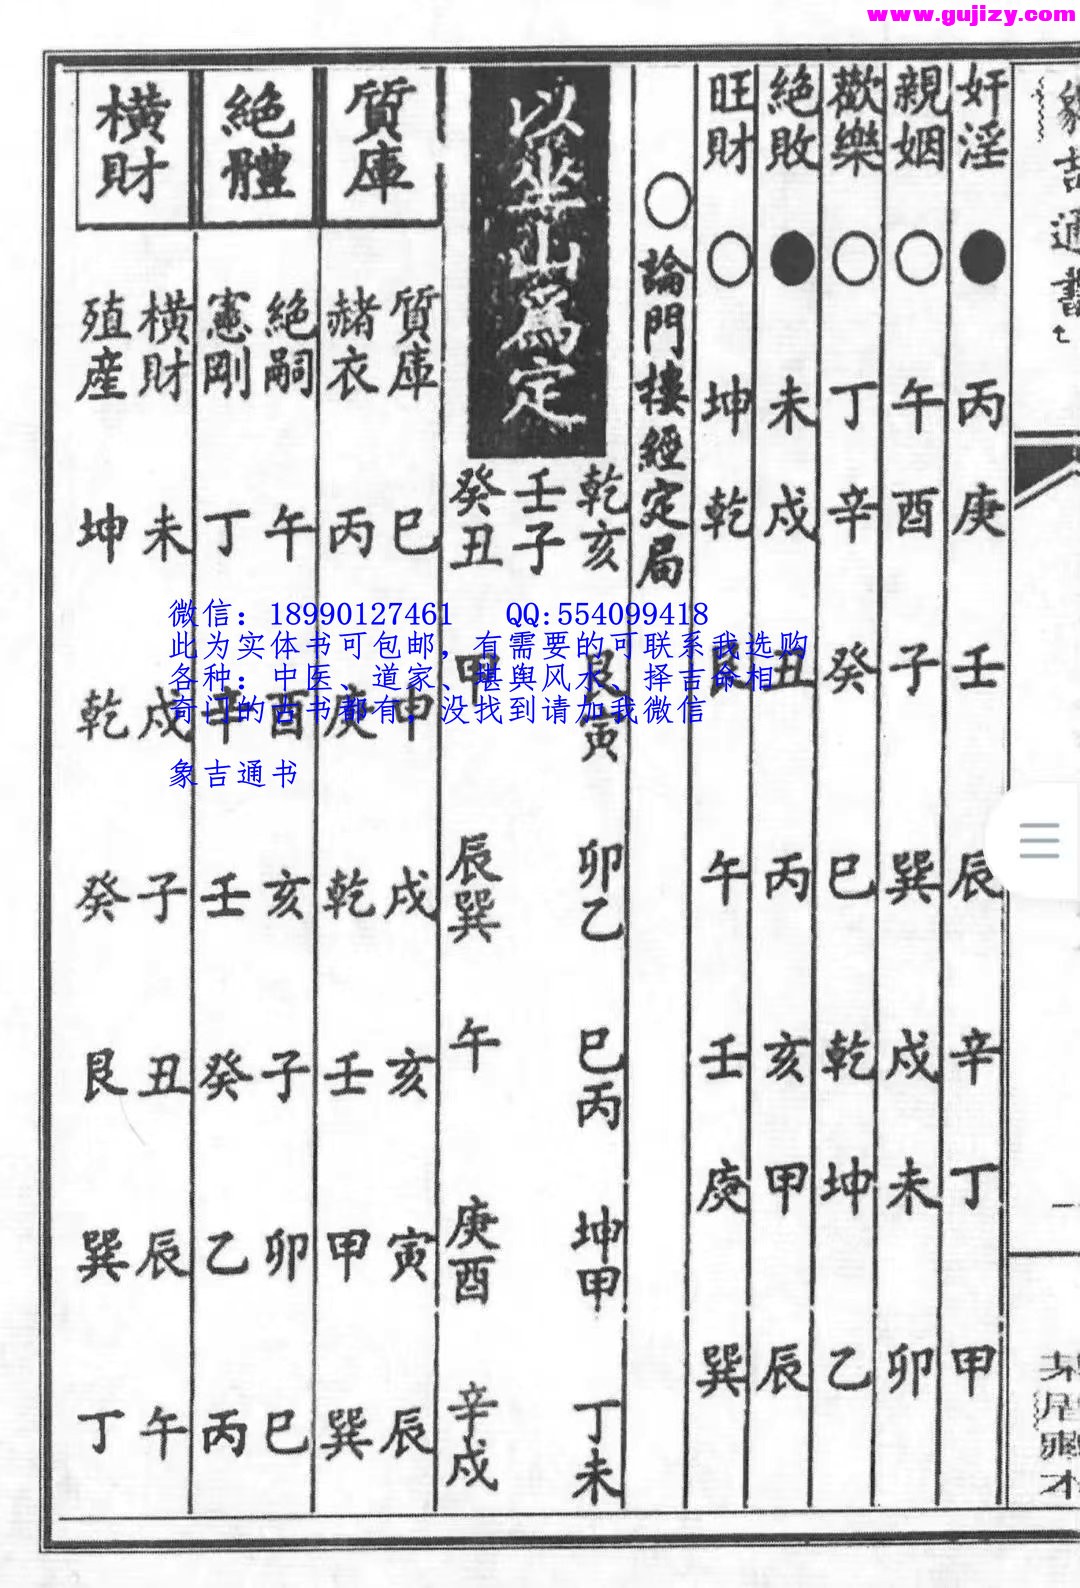 www.gujizy.com
象吉通書
奸淫●丙庚壬辰辛丁甲
親姻○午酉子巽戌未卯
歡樂○丁辛癸巳乾坤乙
絕敗●未戌丑丙亥甲辰
旺財○坤乾艮午壬庚巽
○論門樓經定局
以坐山爲定
乾亥 艮寅 卯乙 巳丙 坤甲 丁未
壬子
癸丑 甲 辰巽 午 庚酉 辛戌
質庫
質庫 巳 申 戌 亥 寅 辰
赭衣 丙 庚 乾 壬 甲 巽
絕體
絕嗣 午 酉 亥 子 卯 巳
憲剛 丁 辛 壬 癸 乙 丙
橫財
橫財 未 戌 子 丑 辰 午
殖產 坤 乾 癸 艮 巽 丁
微信：18990127461 QQ:554099418
此为实体书可包邮，有需要的可联系我选购
各种：中医、道家、堪舆风水、择吉命相
奇门的古书都有，没找到请加我微信
象吉通书